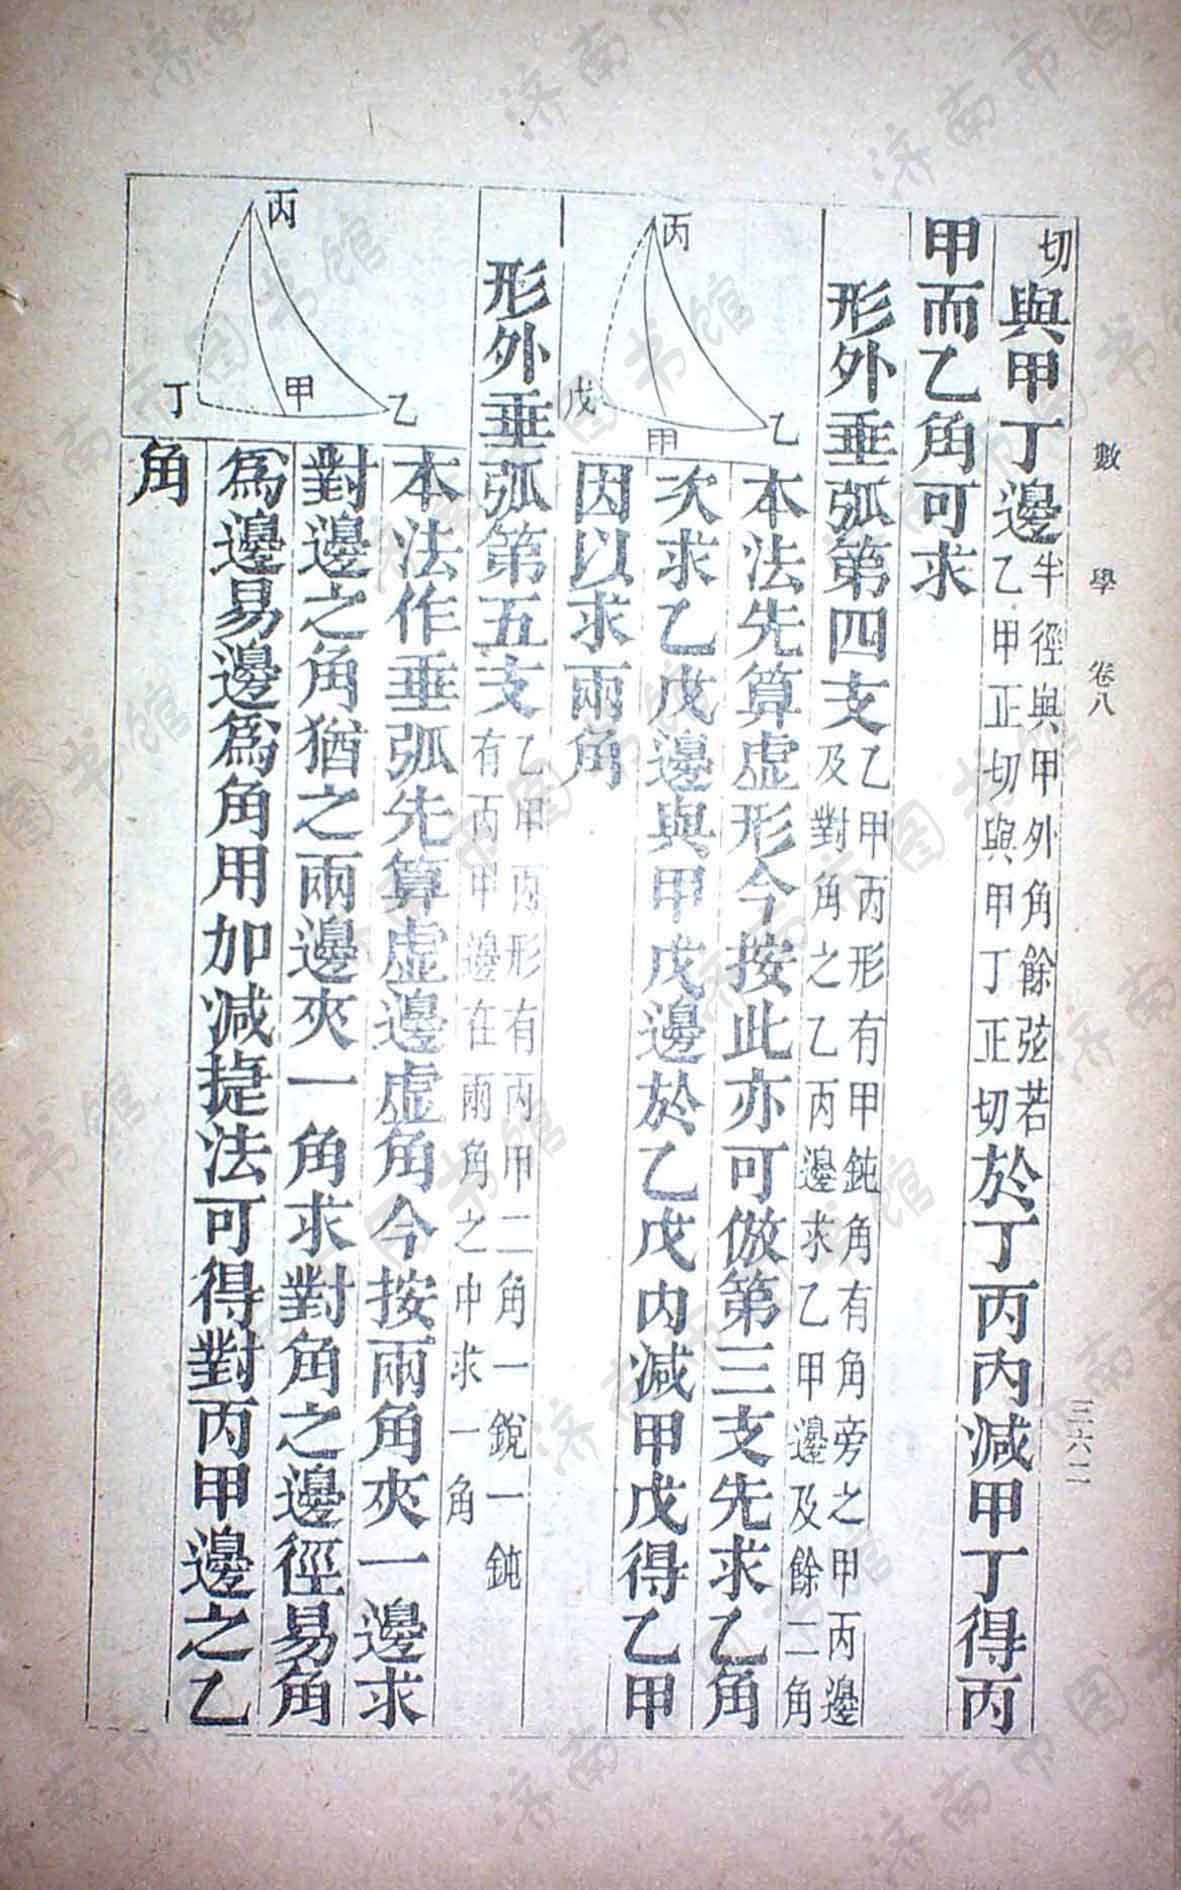 數學 卷八 三六二
切與甲丁邊半徑與甲外角餘弦若
乙甲正切與甲丁正切於丁丙內減甲丁得丙
甲而乙角可求
形外垂弧第四支乙甲丙形有甲鈍角有角旁之甲丙邊
及對角之乙丙邊求乙甲邊及餘二角
丙
戊
甲
乙
本法先算虛形今按此亦可倣第三支先求乙角
次求乙戊邊與甲戊邊於乙戊內減甲戊得乙甲
因以求兩角
形外垂弧第五支乙甲丙形有丙甲二角一銳一鈍
有丙甲邊在兩角之中求一角
丙
丁
甲
乙
本法作垂弧先算虛邊虛角今按兩角夾一邊求
對邊之角猶之兩邊夾一角求對角之邊徑易角
爲邊易邊爲角用加減捷法可得對丙甲邊之乙
角
济南市图书馆